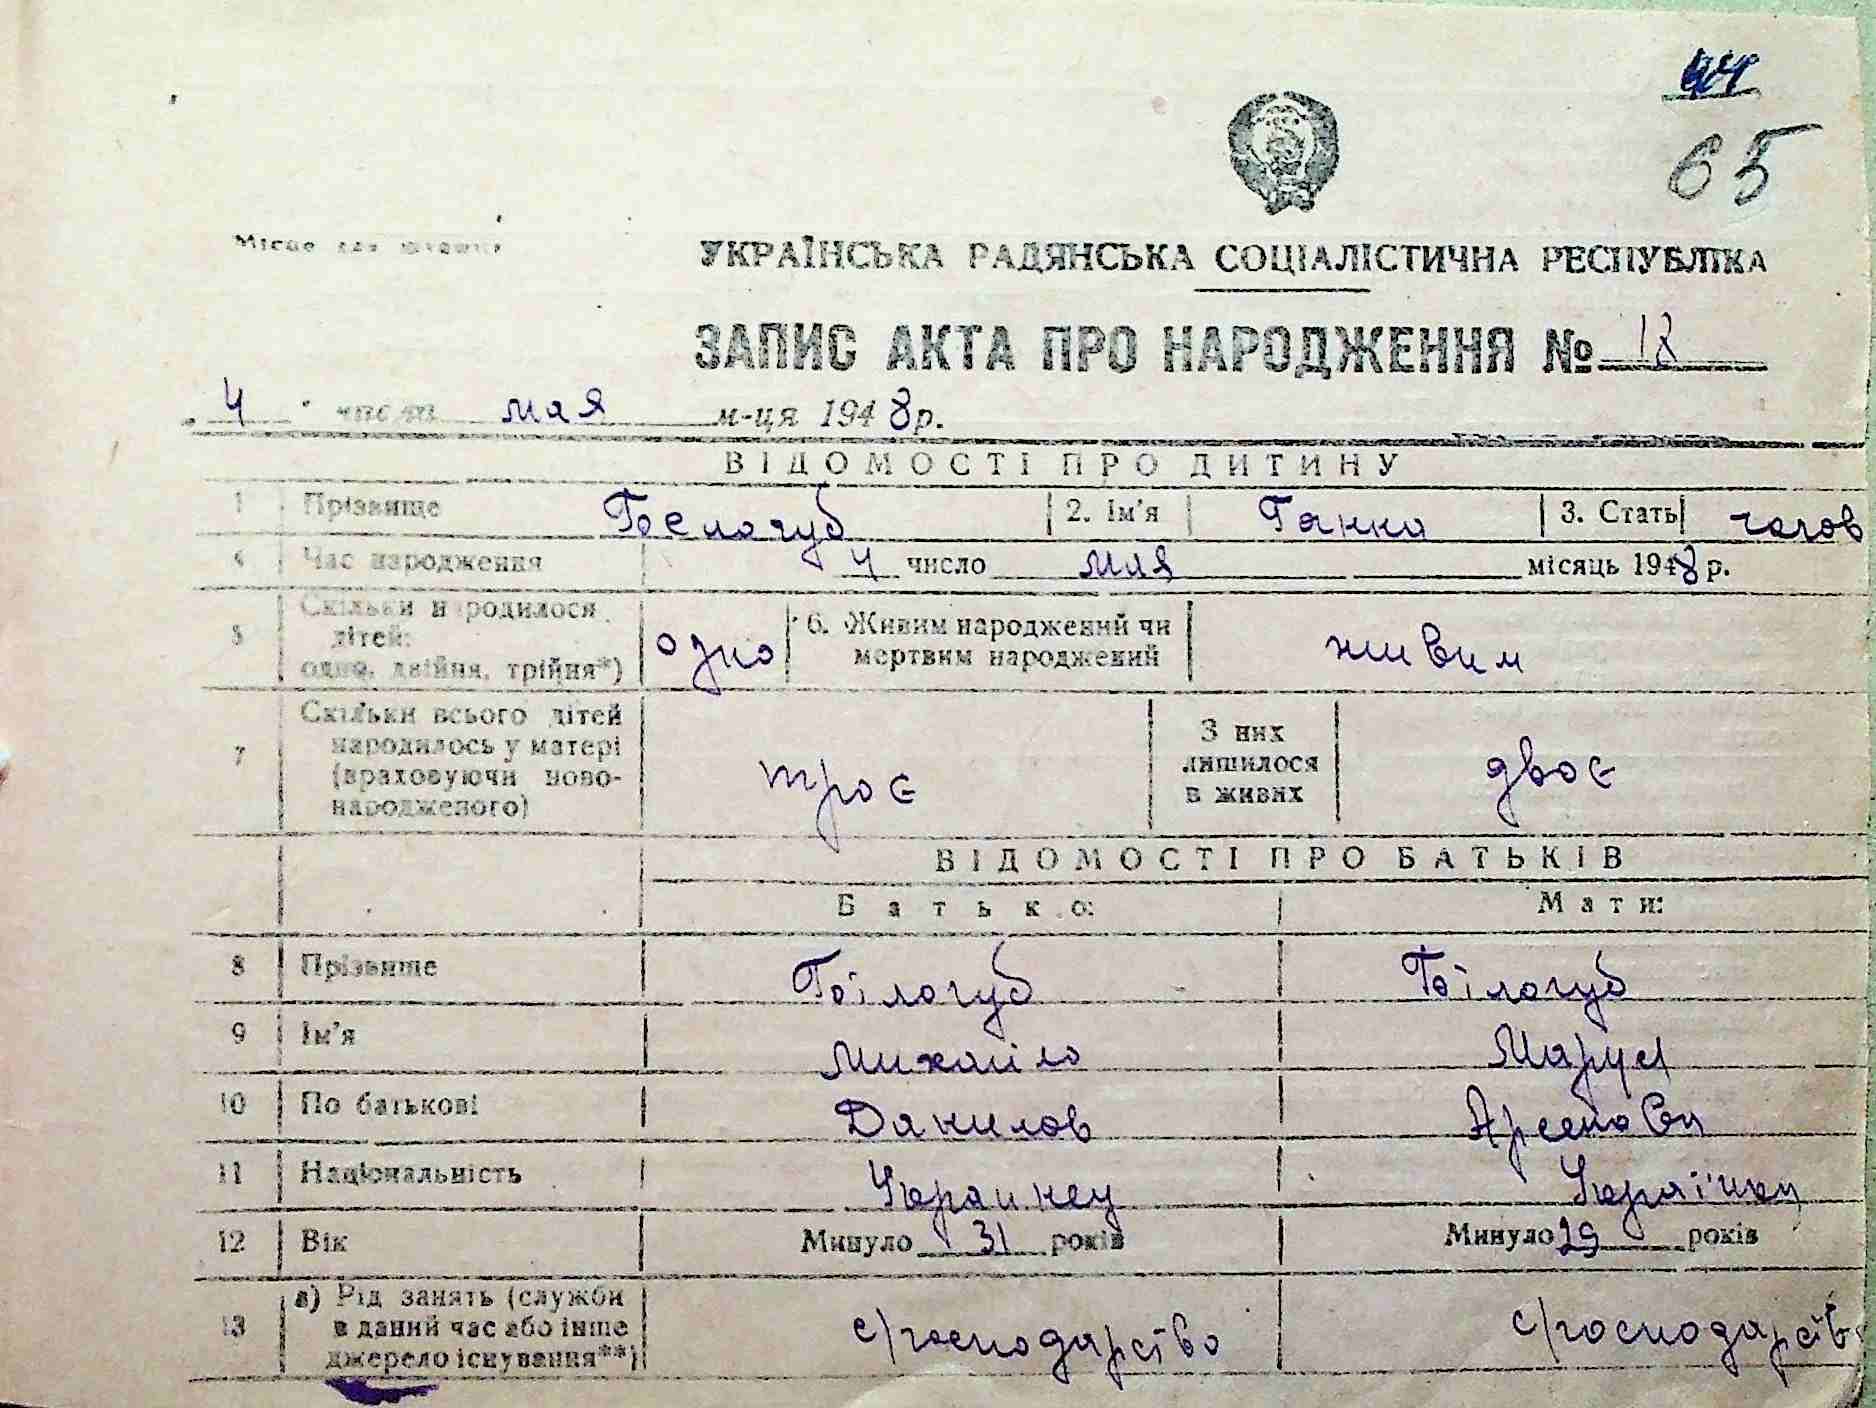 44
65
Місце для штампа
УКРАЇНСЬКА РАДЯНСЬКА СОЦІАЛІСТИЧНА РЕСПУБЛІКА
ЗАПИС АКТА ПРО НАРОДЖЕННЯ № 18
„4" числа мая м-ця 1948 р.
ВІДОМОСТІ ПРО ДИТИНУ
1 Прізвище Белогуб 2. Ім'я Ганна 3. Стать чолов
4 Час народження 4 число мая місяць 1948 р.
5 Скільки народилося дітей: одне, двійня, трійня*) одно 6. Живим народжений чи мертвим народжений живим
7 Скільки всього дітей народилось у матері (враховуючи новонародженого) троє З них лишилося в живих двоє
ВІДОМОСТІ ПРО БАТЬКІВ
Батько: Мати:
8 Прізвище Білогуб Білогуб
9 Ім'я Михайло Маруся
10 По батькові Данилов Арсенова
11 Національність Украинец Українка
12 Вік Минуло 31 років Минуло 29 років
13 а) Рід занять (служби в даний час або інше джерело існування**) с/господарство с/господарств